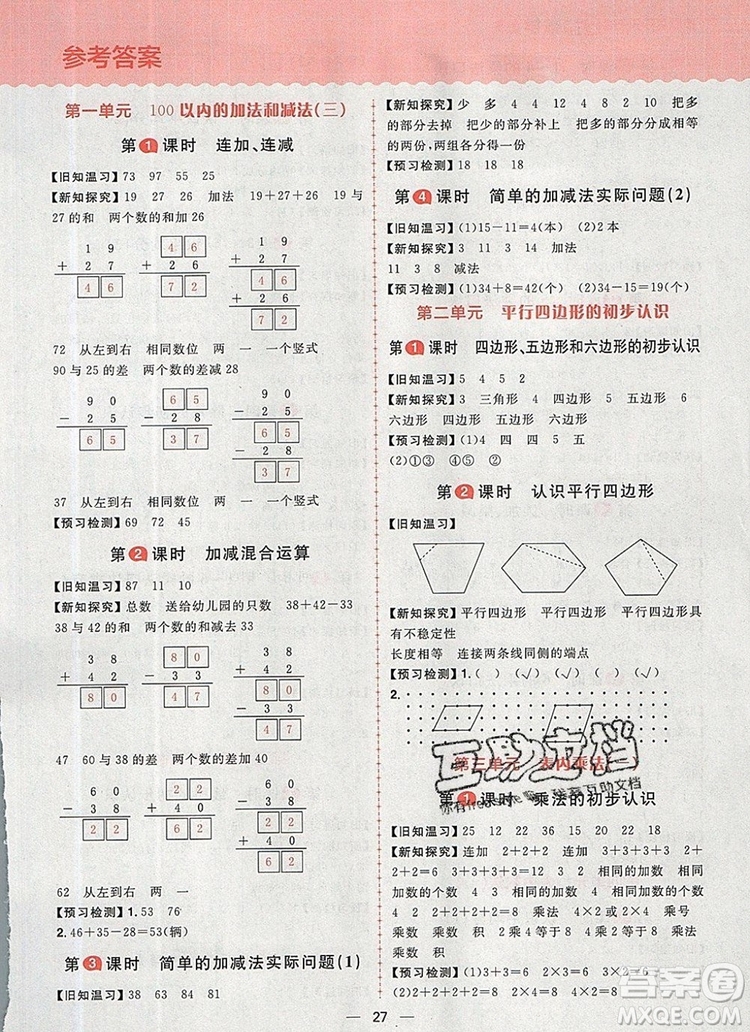 参考答案
第一单元 100以内的加法和减法(三)
第1课时 连加、连减
【旧知温习】73 97 55 25
【新知探究】19 27 26 加法 19+27+26 19与
27的和 两个数的和加26
1 9
+ 2 7
4 6
4 6
+ 2 6
7 2
1 9
+ 2 7
4 6
+ 2 6
7 2
72 从左到右 相同数位 两 一 一个竖式
90与25的差 两个数的差减28
9 0
- 2 5
6 5
6 5
- 2 8
3 7
9 0
- 2 5
6 5
- 2 8
3 7
37 从左到右 相同数位 两 一 一个竖式
【预习检测】69 72 45
第2课时 加减混合运算
【旧知温习】87 11 10
【新知探究】总数 送给幼儿园的只数 38+42-33
38与42的和 两个数的和减去33
3 8
+ 4 2
8 0
8 0
- 3 3
4 7
3 8
+ 4 2
8 0
- 3 3
4 7
47 60与38的差 两个数的差加40
6 0
- 3 8
2 2
2 2
+ 4 0
6 2
6 0
- 3 8
2 2
+ 4 0
6 2
62 从左到右 两 一
【预习检测】1.53 76
2.46+35-28=53(辆)
第3课时 简单的加减法实际问题(1)
【旧知温习】38 63 84 81
【新知探究】多 少 4 4 12 8 4 12 10 把多
的部分去掉 把少的部分补上 把多的部分分成相等
的两份,两组各分得一份
【预习检测】18 18 18
第4课时 简单的加减法实际问题(2)
【旧知温习】(1)15-11=4(本) (2)2本
【新知探究】3 11 3 14 加法
11 3 8 减法
【预习检测】(1)34+8=42(个) (2)34-15=19(个)
第二单元 平行四边形的初步认识
第1课时 四边形、五边形和六边形的初步认识
【旧知温习】5 4 5 2
【新知探究】3 三角形 4 四边形 5 五边形 6
六边形 四边形 五边形 六边形
【预习检测】(1)4 四 四 5 五
(2)①③ ④⑤ ②
第2课时 认识平行四边形
【旧知温习】
【新知探究】平行四边形 平行四边形 平行四边形具
有不稳定性
长度相等 连接两条线同侧的端点
【预习检测】1.( )(√)( )(√)(√)
2.
互助文档
第三单元 表内乘法
第1课时 乘法的初步认识
【旧知温习】25 12 22 36 15 20 18
【新知探究】连加 2+2+2 3+3+3+3 相同的
加数 2+2+2=6 3+3+3+3=12 相同的加数
相同加数的个数 4 2+2+2+2=8 乘法 相同加
数的个数 相同的加数 乘法 4×2 2×4 乘号
乘数 乘数 积 2×4=8 乘数 乘数 积
【预习检测】3+3=6 2×3=6 3×2=6
2+2+2+2=8 4×2=8 2×4=8
答案圈
MXQE.COM
27